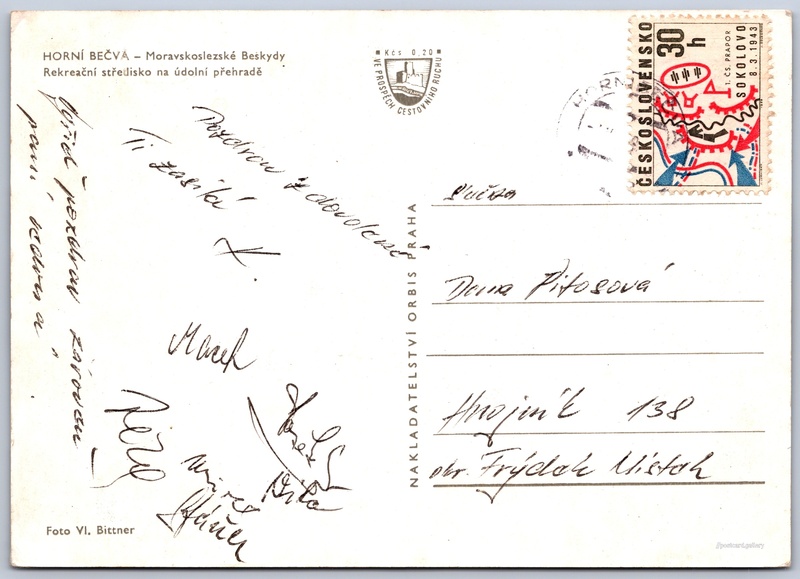 HORNÍ BEČVA – Moravskoslezské Beskydy
Rekreační středisko na údolní přehradě
Kčs 0,20
VE PROSPĚCH CESTOVNÍHO RUCHU
ČESKOSLOVENSKO
30 h
1. ČS. PRAPOR
SOKOLOVO
8. 3. 1943
HORNÍ
Pozdrav z dovolené
Ti zasílá
X.
Marek
pozdrav zároveň
paní
NAKLADATELSTVÍ ORBIS PRAHA
Dana Pitosová
Hnojník 138
okr. Frýdek Místek
Foto Vl. Bittner
//postcard.gallery